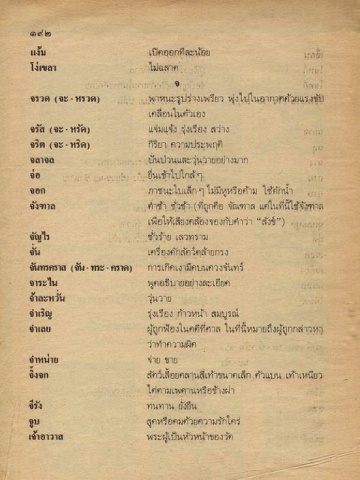 ๑๙๒
แง้ม เปิดออกทีละน้อย
โง่เขลา ไม่ฉลาด
จ
จรวด (จะ-หรวด) พาหนะรูปร่างเพรียว พุ่งไปในอากาศด้วยแรงขับ
เคลื่อนในตัวเอง
จรัส (จะ-หรัด) แจ่มแจ้ง รุ่งเรือง สว่าง
จริต (จะ-หริด) กิริยา ความประพฤติ
จลาจล ปั่นป่วนและวุ่นวายอย่างมาก
จ่อ ยื่นเข้าไปใกล้ๆ
จอก ภาชนะใบเล็กๆ ไม่มีหูหรือด้าม ใช้ตักน้ำ
จังฑาล ต่ำช้า ชั่วช้า (ที่ถูกคือ จัณฑาล แต่ในที่นี้ใช้จังฑาล
เพื่อให้เสียงคล้องจองกับคำว่า "สังข์")
จัญไร ชั่วร้าย เลวทราม
จั่น เครื่องดักสัตว์คล้ายกรง
จันทรคราส (จัน-ทระ-คราด) การเกิดเงามืดบนดวงจันทร์
จาระไน พูดอธิบายอย่างละเอียด
จ้าละหวั่น วุ่นวาย
จำเริญ รุ่งเรือง ก้าวหน้า สมบูรณ์
จำเลย ผู้ถูกฟ้องในคดีที่ศาล ในที่นี้หมายถึงผู้ถูกกล่าวหา
ว่าทำความผิด
จำหน่าย จ่าย ขาย
จิ้งจก สัตว์เลื้อยคลานสี่เท้าขนาดเล็ก ตัวแบน เท้าเหนียว
ไต่ตามเพดานหรือข้างฝา
จีรัง ทนทาน ยั่งยืน
จูบ สูดหรือดมด้วยความรักใคร่
เจ้าอาวาส พระผู้เป็นหัวหน้าของวัด